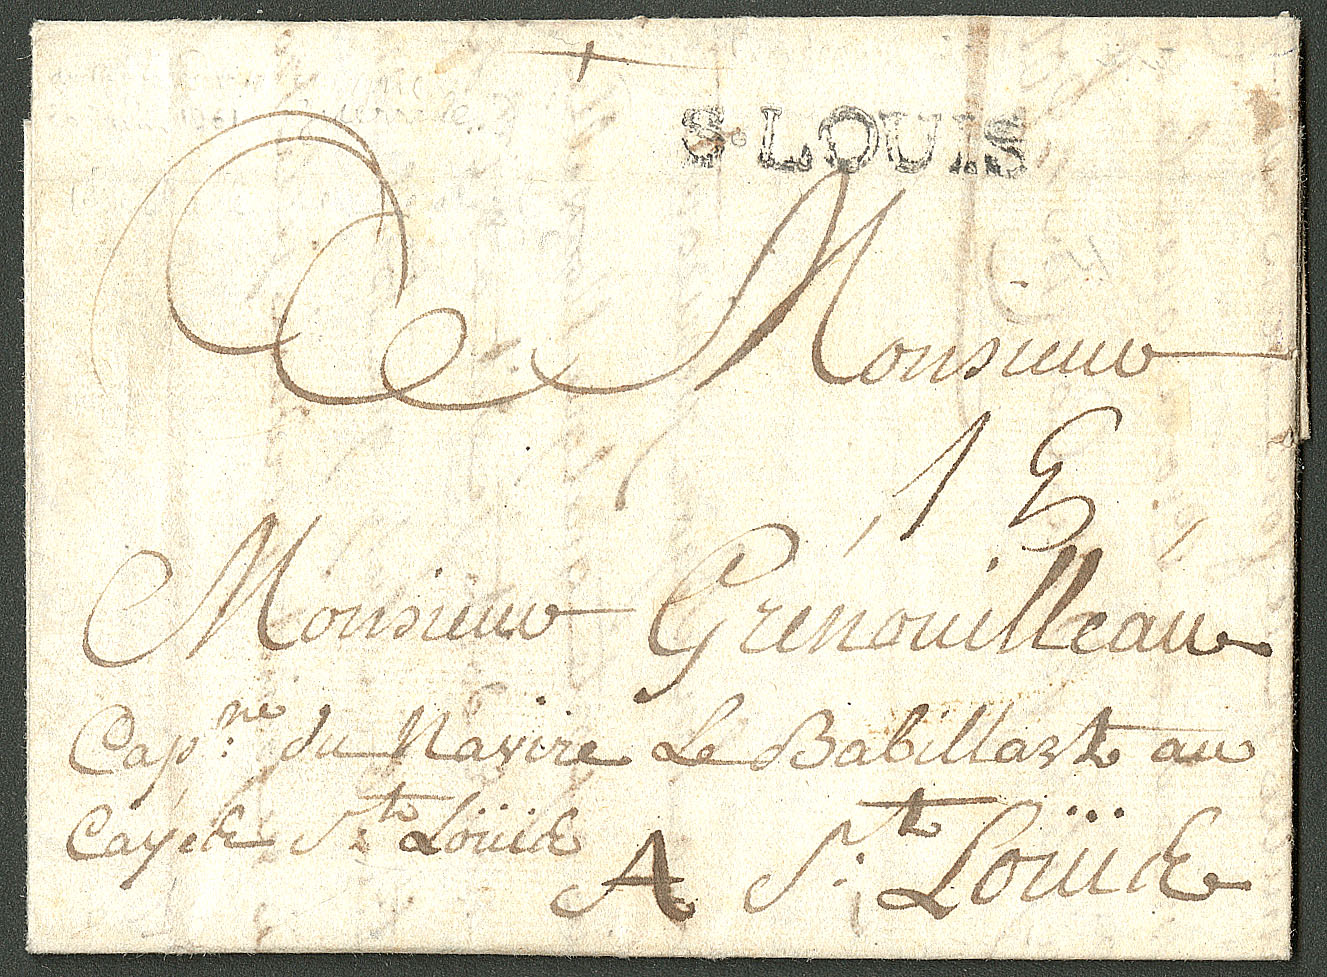 S. LOUIS
Monsieur
Monsieur Grenouilleau
Cap.ne du Navire Le Babillart au
Caye St. Loüis
A St. Loüis